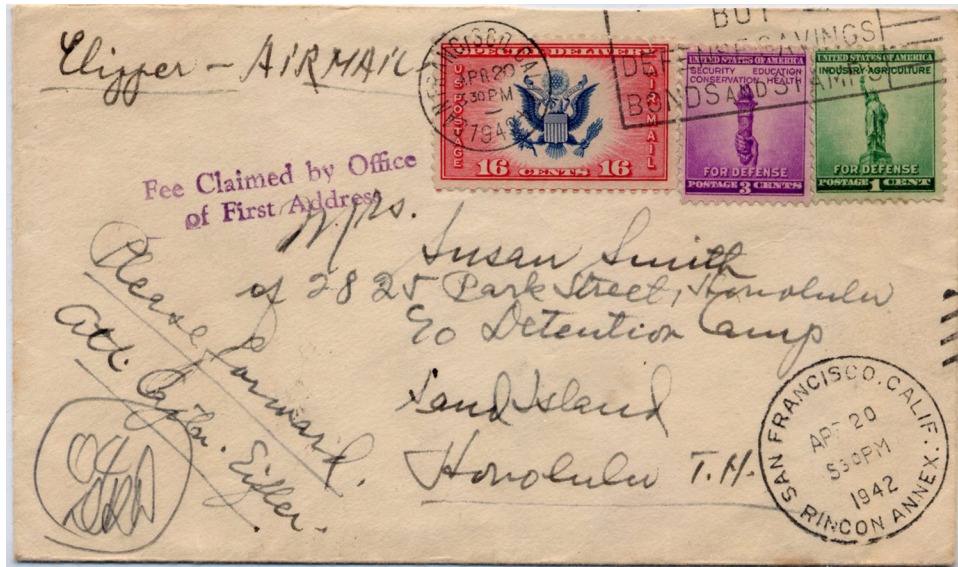 Clipper - AIRMAIL
SAN FRANCISCO, CAL
APR 20
5 30 PM
1942
BUY
DEFENSE SAVINGS
BONDS AND STAMPS
SPECIAL DELIVERY
U.S. POSTAGE
AIR MAIL
16 CENTS 16
UNITED STATES OF AMERICA
SECURITY EDUCATION
CONSERVATION HEALTH
FOR DEFENSE
POSTAGE 3 CENTS
UNITED STATES OF AMERICA
INDUSTRY AGRICULTURE
FOR DEFENSE
POSTAGE 1 CENT
Fee Claimed by Office
of First Address
Mrs.
Susan Smith
of 2825 Park Street, Honolulu
c/o Detention Camp
Sand Island
Honolulu T.H.
Please forward.
Att. Captn. Eifler.
SAN FRANCISCO, CALIF.
APR 20
530PM
1942
RINCON ANNEX.